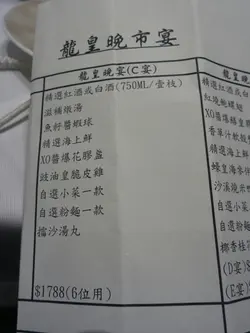 龍皇晚市宴
龍皇晚宴(C宴)
精選紅酒或白酒(750ML/壹枝)
滋補燉湯
魚籽醬蝦球
精選海上鮮
XO醬爆花膠盞
豉油皇脆皮雞
自選小菜一款
自選粉麵一款
擂沙湯丸
$1788(6位用)
龍皇
精選紅酒
紅燒鮑螺
XO醬爆
香草汁軟
精選海上鮮
蠔皇海參
沙溪
自選小菜
自選
椰香桂花
(D宴)$
(E宴)$